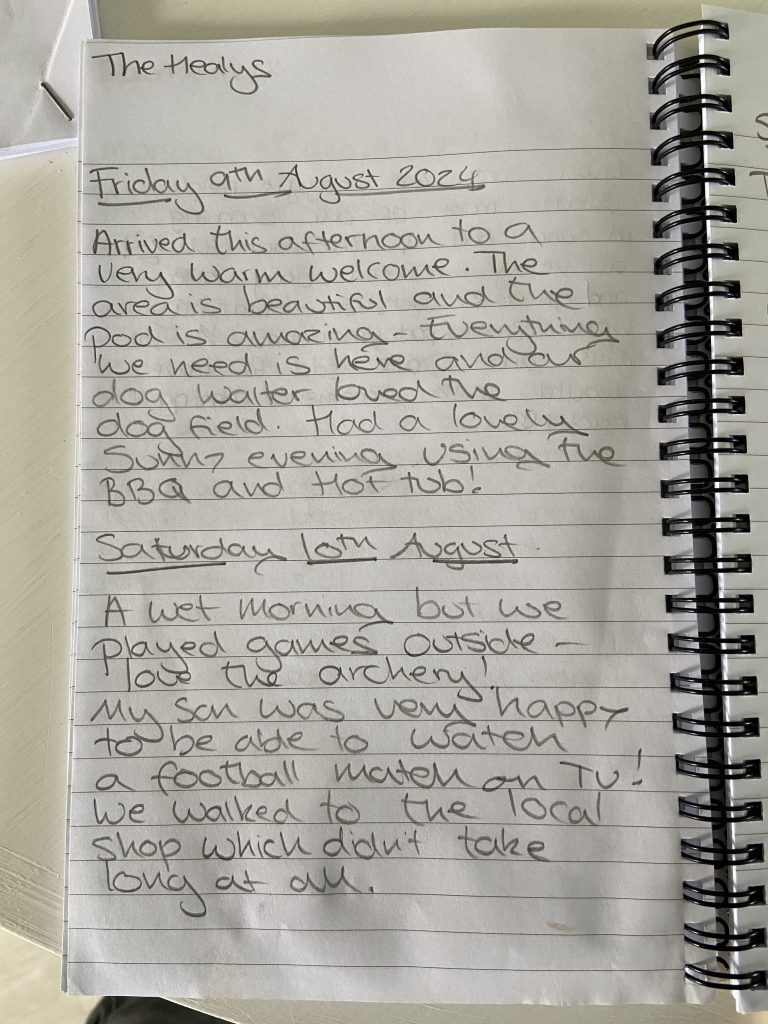 The Healys
Friday 9th August 2024
Arrived this afternoon to a
very warm welcome. The
area is beautiful and the
pod is amazing - Everything
we need is here and our
dog Walter loved the
dog field. Had a lovely
Sunny evening using the
BBQ and Hot tub!
Saturday 10th August.
A wet morning but we
played games outside -
love the archery!
My son was very happy
to be able to watch
a football match on TV!
We walked to the local
shop which didn't take
long at all.
S
T